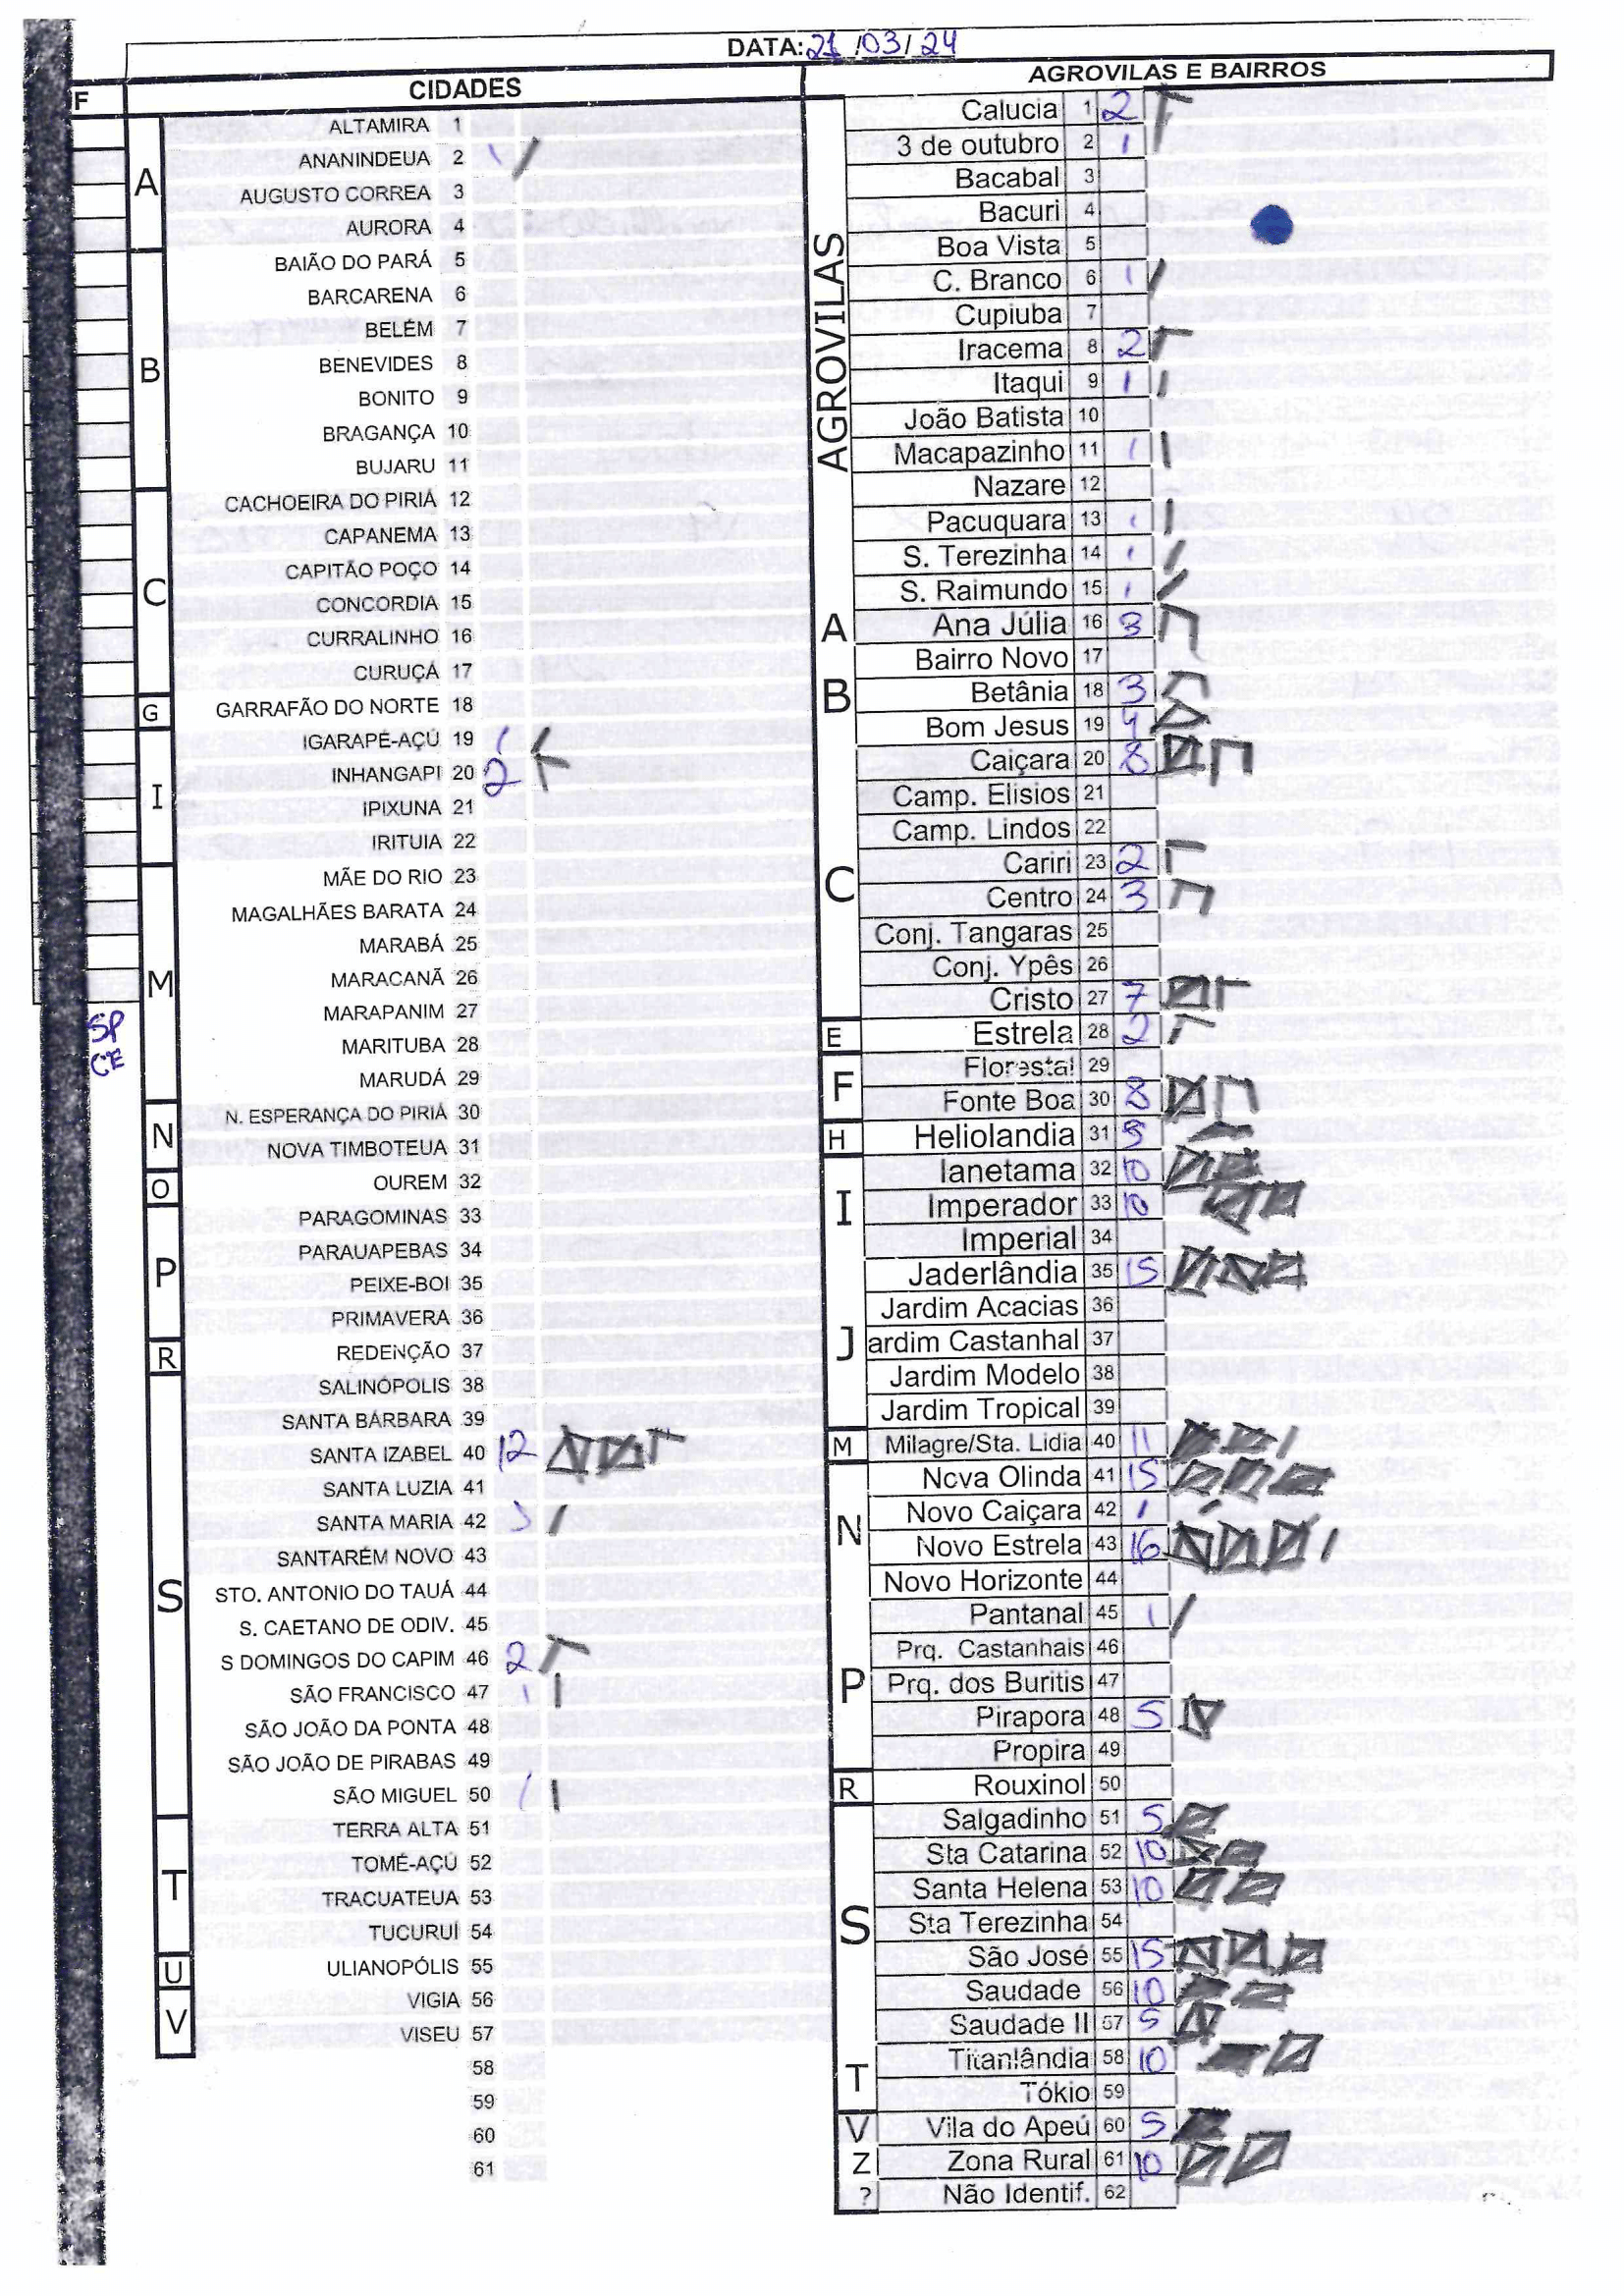 DATA: 21/03/24
F
CIDADES
A
ALTAMIRA 1
ANANINDEUA 2 1
AUGUSTO CORREA 3
AURORA 4
B
BAIÃO DO PARÁ 5
BARCARENA 6
BELÉM 7
BENEVIDES 8
BONITO 9
BRAGANÇA 10
BUJARU 11
C
CACHOEIRA DO PIRIÁ 12
CAPANEMA 13
CAPITÃO POÇO 14
CONCORDIA 15
CURRALINHO 16
CURUÇÁ 17
G
GARRAFÃO DO NORTE 18
I
IGARAPÉ-AÇÚ 19 1
INHANGAPI 20 2
IPIXUNA 21
IRITUIA 22
M
MÃE DO RIO 23
MAGALHÃES BARATA 24
MARABÁ 25
MARACANÃ 26
MARAPANIM 27
MARITUBA 28
MARUDÁ 29
SP
CE
N
N. ESPERANÇA DO PIRIÁ 30
NOVA TIMBOTEUA 31
O
OUREM 32
P
PARAGOMINAS 33
PARAUAPEBAS 34
PEIXE-BOI 35
PRIMAVERA 36
R
REDENÇÃO 37
S
SALINÓPOLIS 38
SANTA BÁRBARA 39
SANTA IZABEL 40 12
SANTA LUZIA 41
SANTA MARIA 42
SANTARÉM NOVO 43
STO. ANTONIO DO TAUÁ 44
S. CAETANO DE ODIV. 45
S DOMINGOS DO CAPIM 46 2
SÃO FRANCISCO 47 1
SÃO JOÃO DA PONTA 48
SÃO JOÃO DE PIRABAS 49
SÃO MIGUEL 50 1
T
TERRA ALTA 51
TOMÉ-AÇÚ 52
TRACUATEUA 53
TUCURUÍ 54
U
ULIANOPÓLIS 55
V
VIGIA 56
VISEU 57
58
59
60
61
AGROVILAS E BAIRROS
AGROVILAS
Calucia 1 2
3 de outubro 2 1
Bacabal 3
Bacuri 4
Boa Vista 5
C. Branco 6 1
Cupiuba 7
Iracema 8 2
Itaqui 9 1
João Batista 10
Macapazinho 11 1
Nazare 12
Pacuquara 13 1
S. Terezinha 14 1
S. Raimundo 15 1
A
Ana Júlia 16 3
Bairro Novo 17
B
Betânia 18 3
Bom Jesus 19 4
C
Caiçara 20 8
Camp. Elisios 21
Camp. Lindos 22
Cariri 23 2
Centro 24 3
Conj. Tangaras 25
Conj. Ypês 26
Cristo 27 7
E
Estrela 28 2
F
Florestal 29
Fonte Boa 30 8
H
Heliolandia 31 5
I
Ianetama 32 10
Imperador 33 10
Imperial 34
J
Jaderlândia 35 15
Jardim Acacias 36
ardim Castanhal 37
Jardim Modelo 38
Jardim Tropical 39
M
Milagre/Sta. Lidia 40 11
N
Nova Olinda 41 15
Novo Caiçara 42 1
Novo Estrela 43 16
Novo Horizonte 44
P
Pantanal 45 1
Prq. Castanhais 46
Prq. dos Buritis 47
Pirapora 48 5
Propira 49
R
Rouxinol 50
S
Salgadinho 51 5
Sta Catarina 52 10
Santa Helena 53 10
Sta Terezinha 54
São José 55 15
Saudade 56 10
Saudade II 57 5
T
Titanlândia 58 10
Tókio 59
V
Vila do Apeú 60 5
Z
Zona Rural 61 10
?
Não Identif. 62